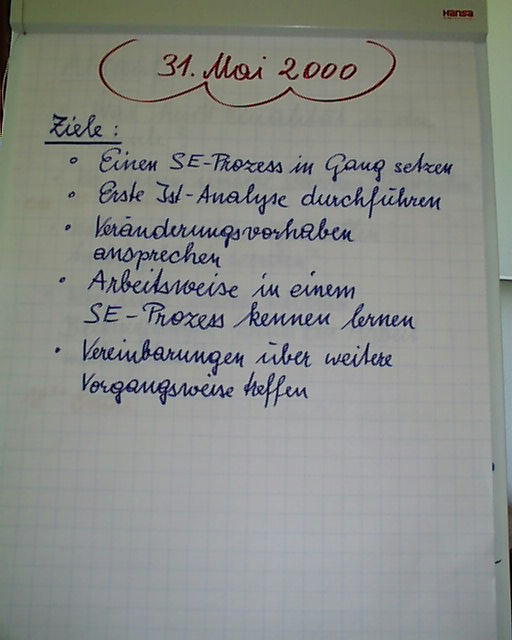 Hansa
31. Mai 2000
Ziele:
° Einen SE-Prozess in Gang setzen
° Erste Ist-Analyse durchführen
• Veränderungsvorhaben
ansprechen
• Arbeitsweise in einem
SE-Prozess kennen lernen
• Vereinbarungen über weitere
Vorgangsweise treffen